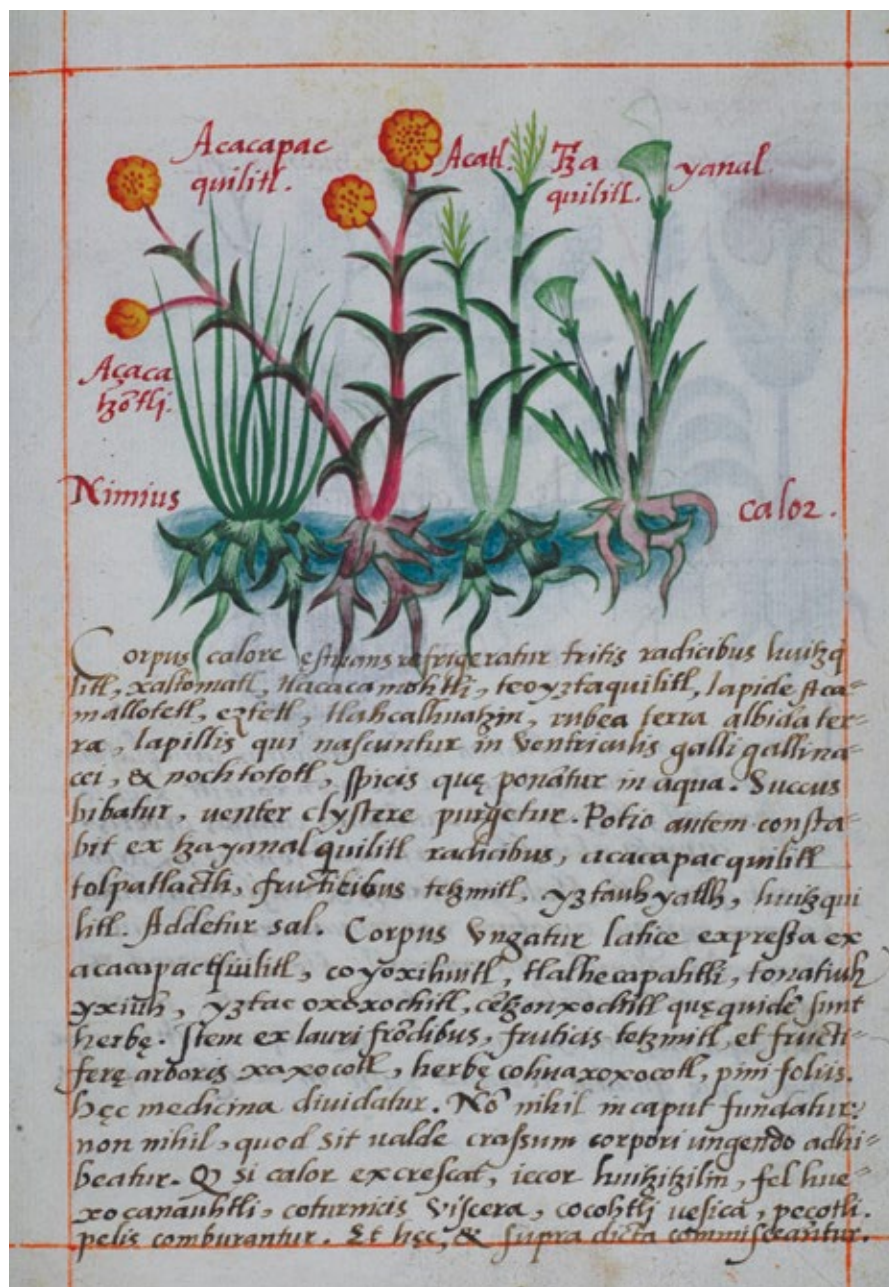 Acacapac
quilitl.
Acatl.
Tza
quilitl.
yanal
Açaca
tzōtli.
Nimius
calor.
Corpus calore estuans refrigeratur tritis radicibus huitzq̃
litl, xaltomatl, tlacacamohtli, teoyztaquilitl, lapide
mallotetl, eztetl, tlahcalhuatzin, rubea terra albida ter=
ra, lapillis qui nascuntur in ventriculis galli gallina=
cei, & nochtototl, spicis quę ponātur in aqua. Succus
bibatur, venter clystere purgetur. Potio autem consta=
bit ex tzayanalquilitl radicibus, acacapacquilitl
tolpatlactli, fruticibus tetzmitl, yztauhyattlh, huitzqui
litl. Addetur sal. Corpus vngatur latice expressa ex
coyoxihuitl, tlalhecapahtli, tonatiuh
yxiuh, yztac oxoxochitl, cētzonxochitl quęquidē sunt
herbę. Item ex lauri frōdibus, fruticis tetzmitl, et fructi=
ferę arboris xaxocotl, herbę cohuaxoxocotl, pini foliis.
hęc medicina diuidatur. Nō nihil in caput fundatur:
non nihil, quod sit ualde crassum corpori ungendo adhi=
beatur. Q si calor excrescat, iecor huitzitzilin, fel hue=
xocanauhtli, coturnicis viscera, cocohtli uesica, peçotli.
pelis comburantur. Et hęc, & supra dicta commisceantur.